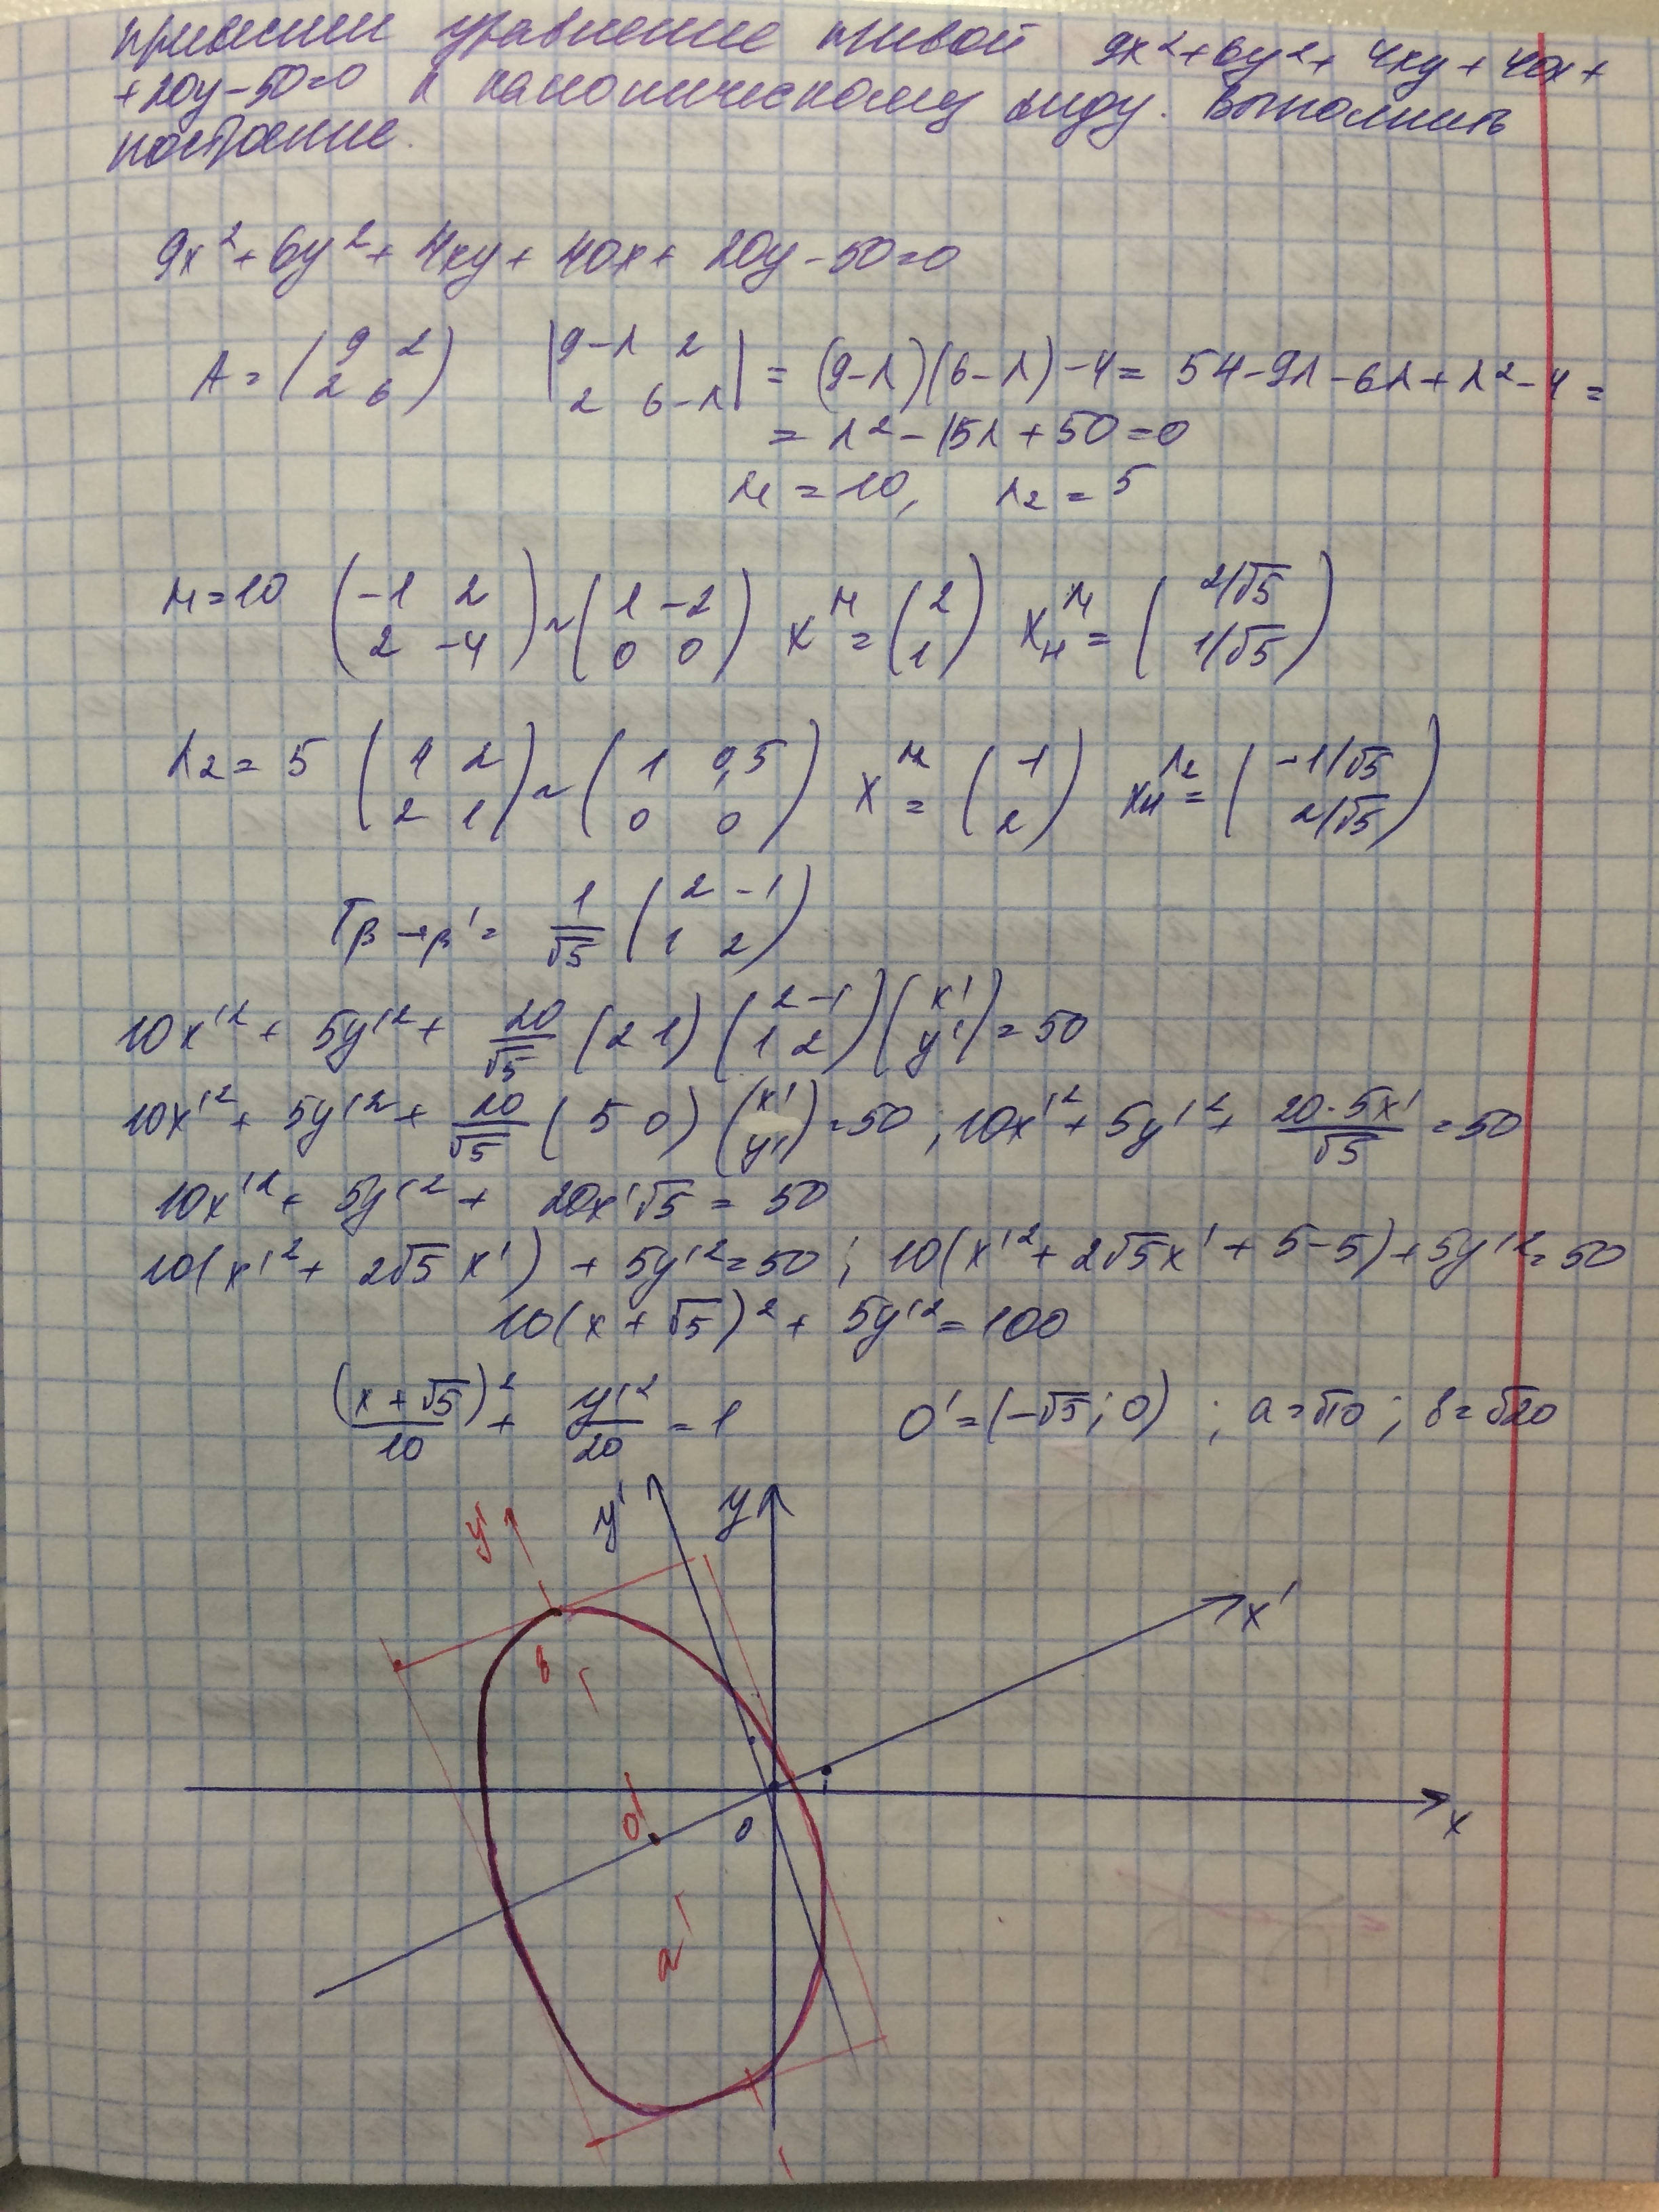 привести уравнение кривой 9x² + 6y² + 4xy + 40x +
+ 20y - 50 = 0 к каноническому виду. Выполнить
построение.
9x² + 6y² + 4xy + 40x + 20y - 50 = 0
A = (9 2; 2 6) |9-λ 2; 2 6-λ| = (9-λ)(6-λ) - 4 = 54 - 9λ - 6λ + λ² - 4 =
= λ² - 15λ + 50 = 0
λ₁ = 10, λ₂ = 5
λ₁ = 10 (-1 2; 2 -4) ~ (1 -2; 0 0) X^λ₁ = (2; 1) Xн^λ₁ = (2/√5; 1/√5)
λ₂ = 5 (4 2; 2 1) ~ (1 0,5; 0 0) X^λ₂ = (-1; 2) Xн^λ₂ = (-1/√5; 2/√5)
Tβ→β' = 1/√5 (2 -1; 1 2)
10x'² + 5y'² + 20/√5 (2 1) (2 -1; 1 2) (x'; y') = 50
10x'² + 5y'² + 20/√5 (5 0) (x'; y') = 50 ; 10x'² + 5y'² + 20·5x'/√5 = 50
10x'² + 5y'² + 20x'√5 = 50
10(x'² + 2√5 x') + 5y'² = 50 ; 10(x'² + 2√5x' + 5 - 5) + 5y'² = 50
10(x + √5)² + 5y'² = 100
(x + √5)²/10 + y'²/20 = 1 O' = (-√5; 0) ; a = √10 ; b = √20
y' y' y
x'
b
1
O' O x
a